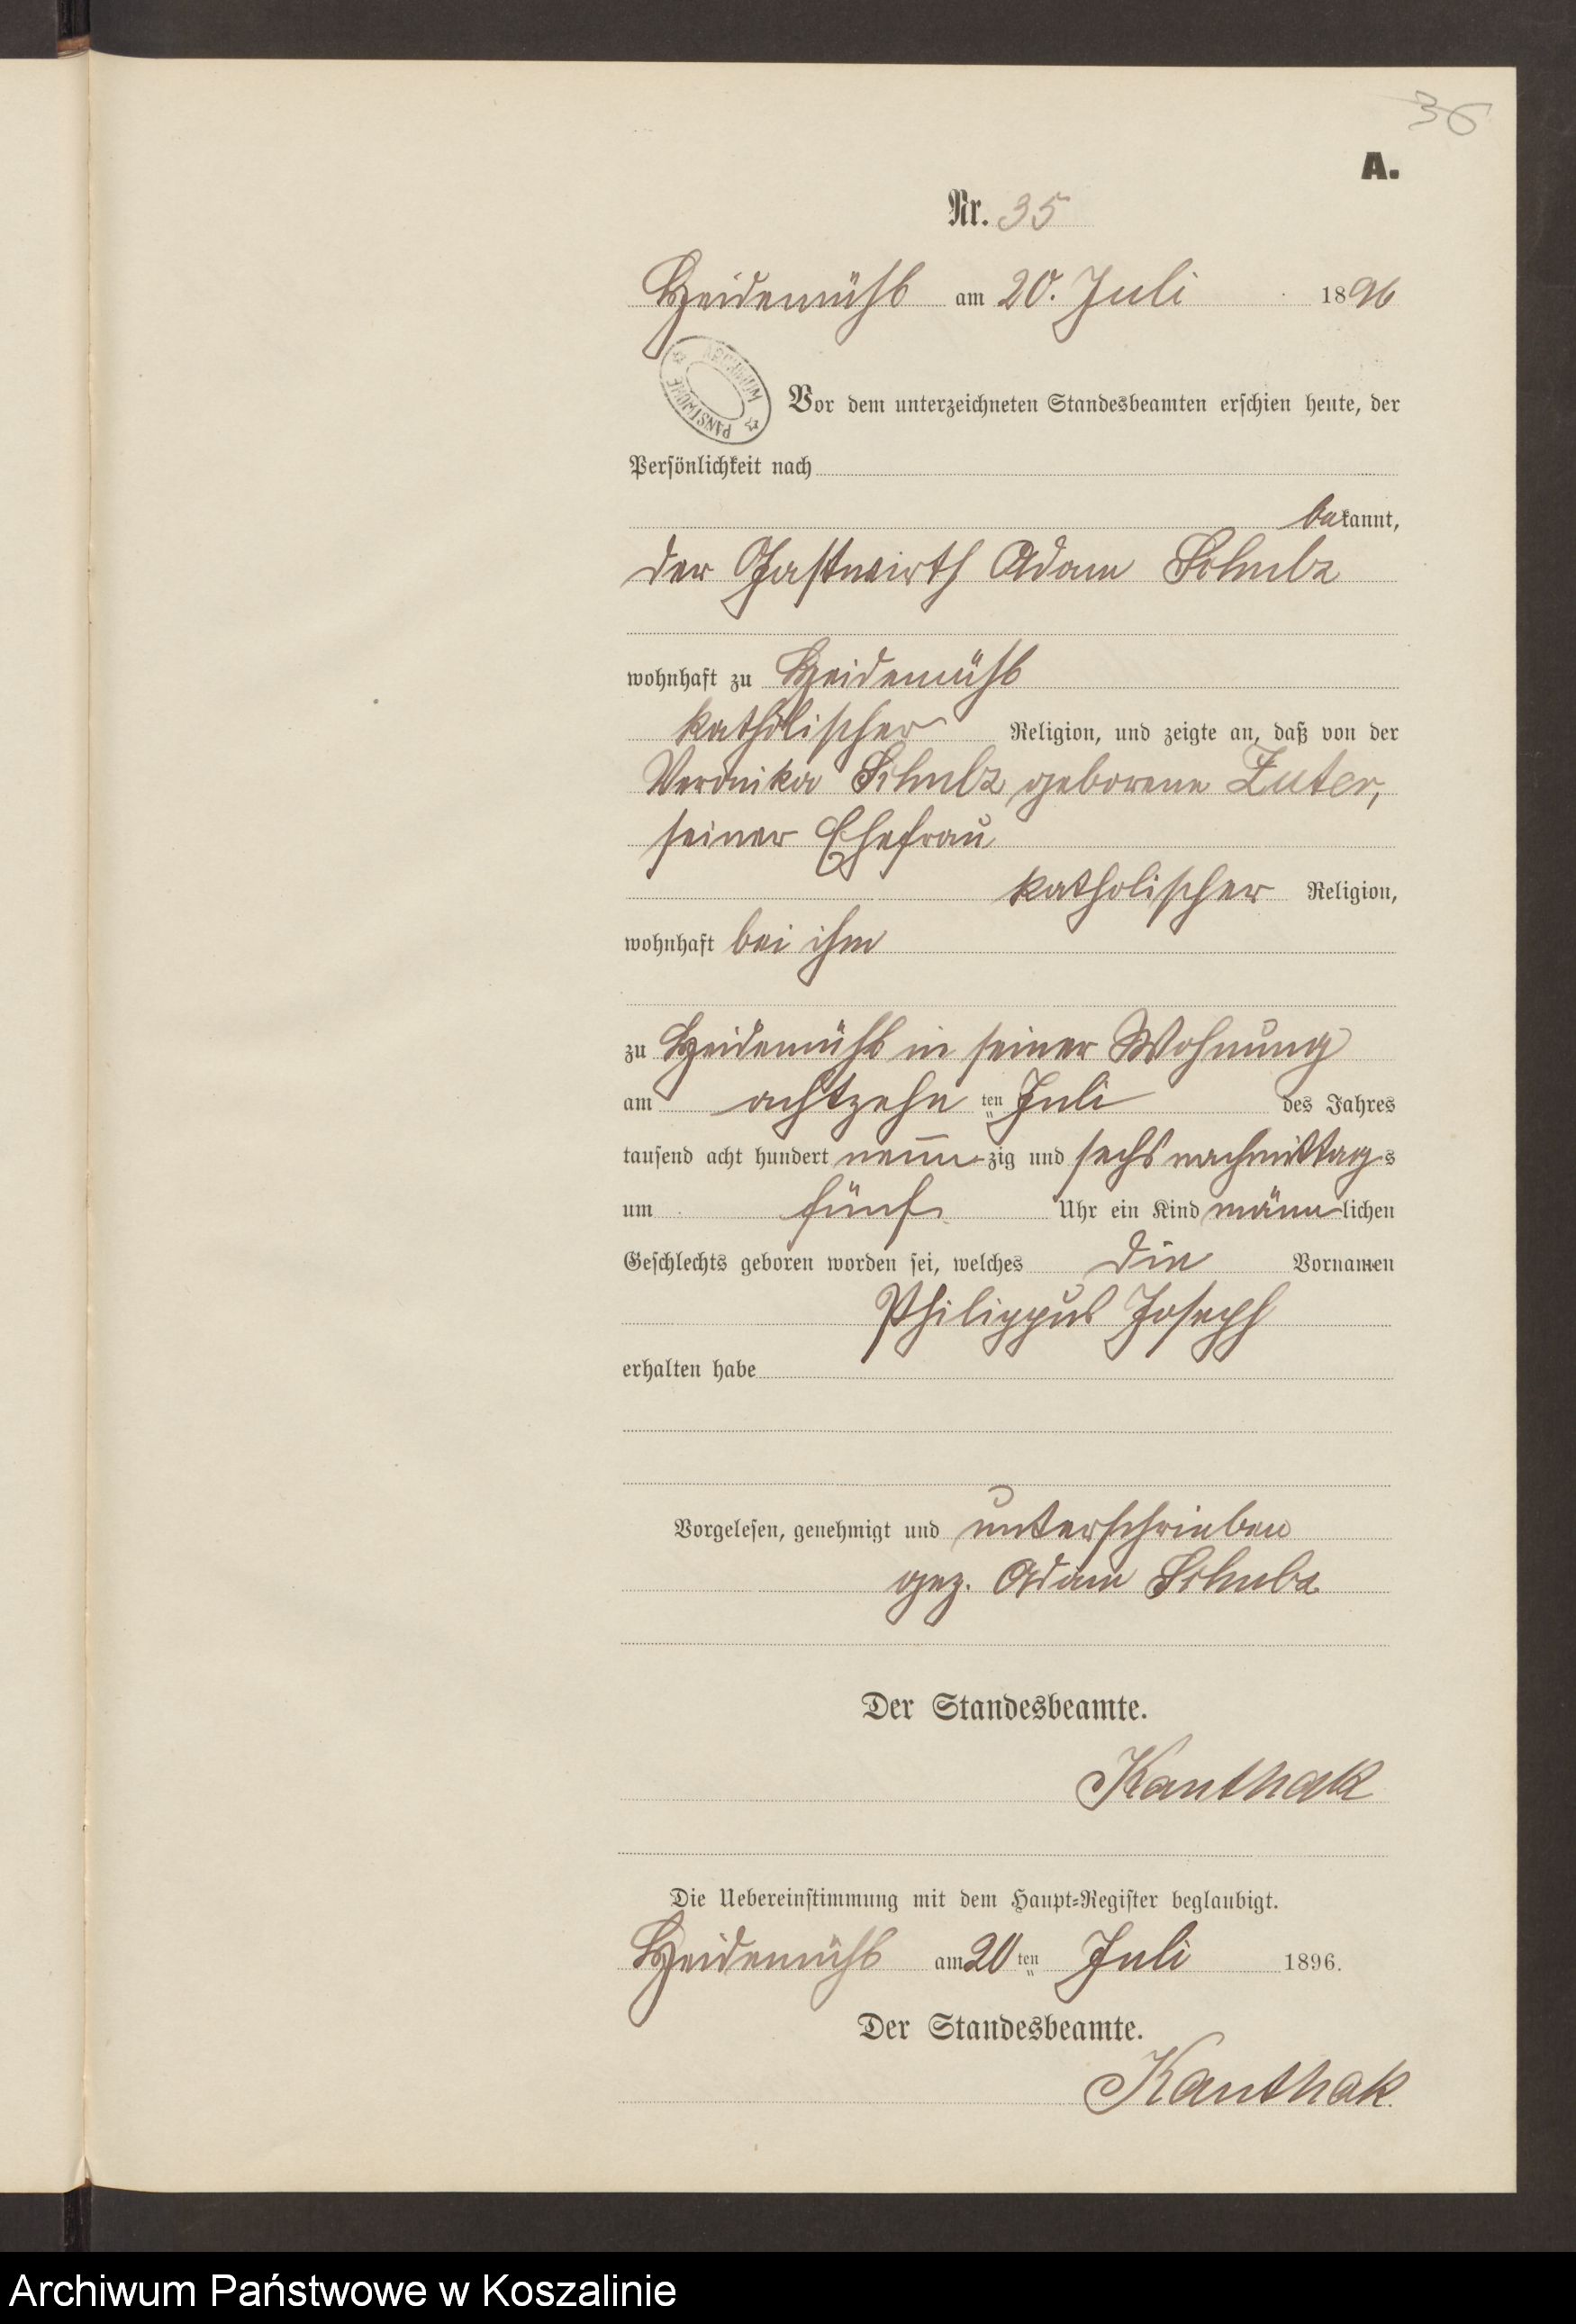 36
A.
Nr. 35
Heidemühl am 20. Juli 1896
ARCHIWUM PAŃSTWOWE
Vor dem unterzeichneten Standesbeamten erschien heute, der
Persönlichkeit nach
bekannt,
der Gastwirth Adam Schulz
wohnhaft zu Heidemühl
katholischer Religion, und zeigte an, daß von der
Veronika Schulz geborene Zuter,
seiner Ehefrau
katholischer Religion,
wohnhaft bei ihm
zu Heidemühl in seiner Wohnung
am achtzehn ten Juli des Jahres
tausend acht hundert neun zig und sechs nachmittag s
um fünf Uhr ein Kind männ lichen
Geschlechts geboren worden sei, welches die Vornamen
Philippus Joseph
erhalten habe
Vorgelesen, genehmigt und unterschrieben
gez. Adam Schulz
Der Standesbeamte.
Kanthak
Die Uebereinstimmung mit dem Haupt-Register beglaubigt.
Heidemühl am 20 ten Juli 1896.
Der Standesbeamte.
Kanthak.
Archiwum Państwowe w Koszalinie